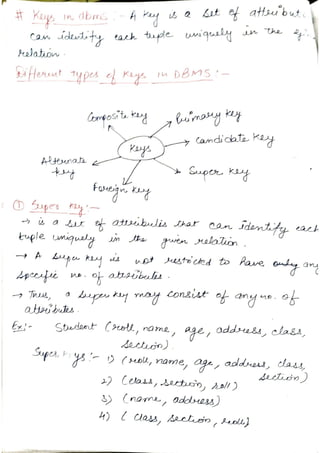 # Keys in dbms :- A key is a set of attribut
can identify each tuple uniquely in the
relation.
Different types of keys in DBMS :-
Composite key
Primary key
Candidate key
Keys
Alternate
key
Super key
Foreign key
① Super key :-
→ is a set of attributes that can identify each
tuple uniquely in the given relation.
→ A super key is not restricted to have any
specific no. of attributes.
→ Thus, a super key may consist of any no. of
attributes.
Ex:- Student (roll, name, age, address, class,
section)
Super keys :- 1) (roll, name, age, address, class,
section)
2) (class, section, roll)
3) (name, address)
4) (class, section, roll)